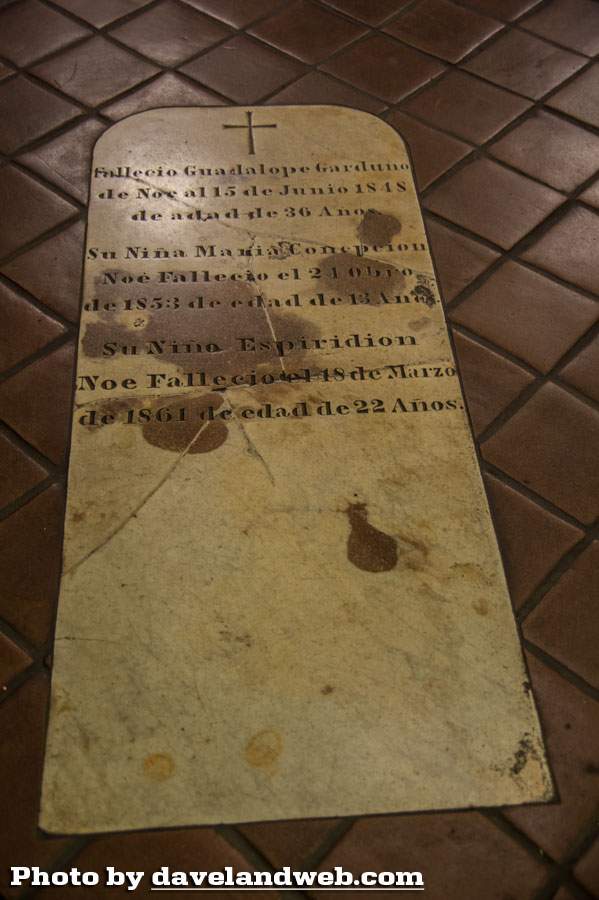 Fallecio Guadalope Garduño
de Noe al 15 de Junio 1848
de adad de 36 Años.
Su Niña Maria Concepcion
Noe Fallecio el 24 Obro
de 1853 de edad de 13 Años.
Su Niño Espiridion
Noe Fallecio el 18 de Marzo
de 1861 de edad de 22 Años.
Photo by davelandweb.com